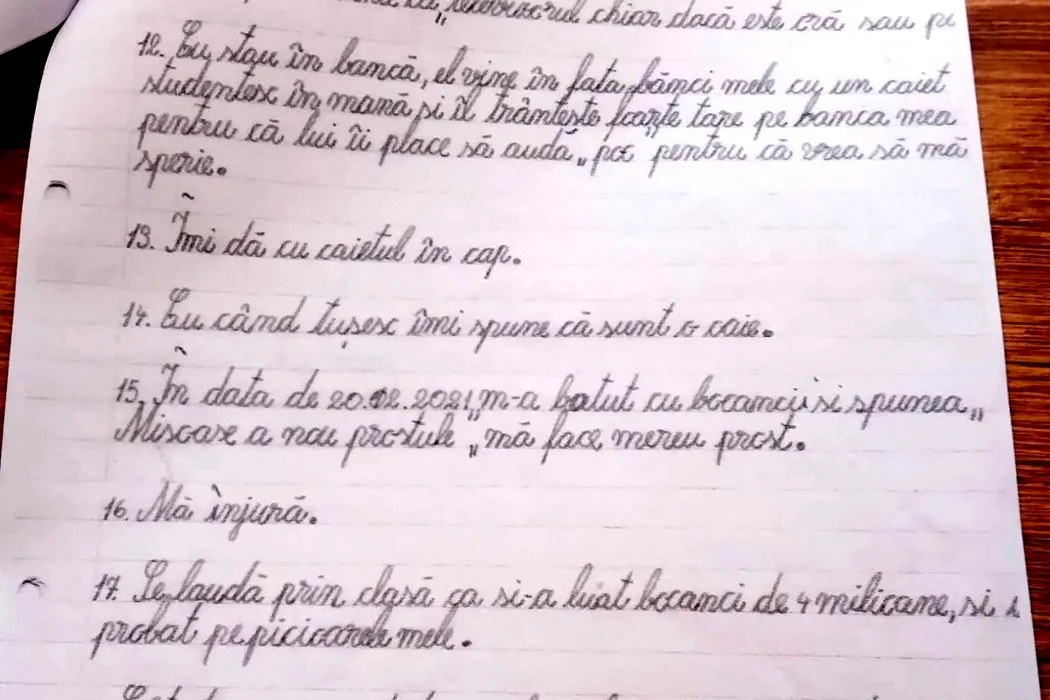 chiar dacă este oră sau pe
12. Eu stau în bancă, el vine în fata bănci mele cu un caiet
studentesc în mană și îl trântește foarte tare pe banca mea
pentru că lui îi place să audă „poc pentru că vrea să mă
sperie.
13. Îmi dă cu caietul în cap.
14. Eu când tușesc îmi spune că sunt o oaie.
15. În data de 20.02.2021 m-a batut cu bocanci și spunea „
Miscase a nou prostule „mă face mereu prost.
16. Mă înjură.
17. Se laudă prin clasă ca si-a luat bocanci de 4 milioane, si
probat pe picioarele mele.